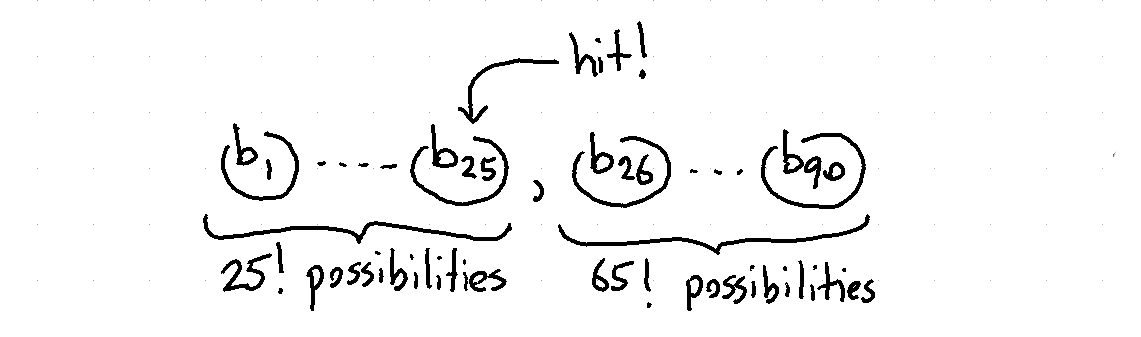 hit!
b1 ----- b25 , b26 ... b90
25! possibilities 65! possibilities